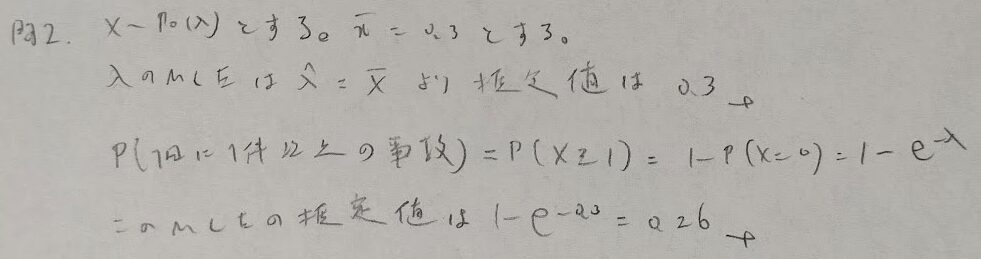 問2. X~Po(λ)とする。x̄=0.3とする。
λのMLEはλ̂=X̄より推定値は0.3
P(1日に1件以上の事故)=P(X≧1)=1-P(X=0)=1-e^-λ
このMLEの推定値は1-e^-0.3=0.26